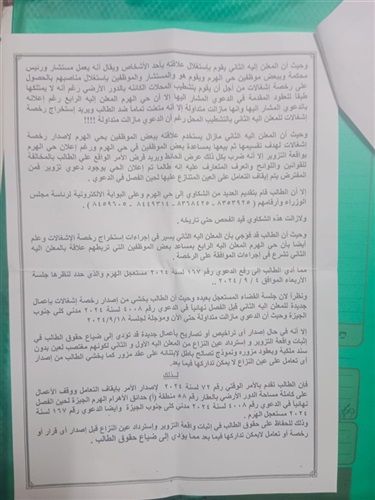 وحيث أن المعلن اليه الثاني يقوم بإستغلال علاقته بأحد الأشخاص ويقال أنه يعمل مستشار ورئيس
محكمة وبعض موظفين حي الهرم ويقوم هو والمستشار والموظفين بإستغلال مناصبهم بالحصول
على رخصة إشغالات من أجل أن يقوم بتشطيب المحلات الكائنه بالدور الأرضي رغم أنه لا يمتلكها
طبقا للعقود المقدمة في الدعوي المشار اليها إلا أن حي الهرم المعلن اليه الرابع رغم إعلانه
بالدعاوي المشار اليها وانها مازالت متداولة إلا أنه متعنت تماما ضد الطالب ويريد إستخراج رخصة
إشغالات للمعلن اليه الثاني بالتشطيب المحل رغم أن الدعوي مازالت متداولة !!!!
وحيث أن المعلن اليه الثاني مازال يستخدم علاقته ببعض الموظفين بحي الهرم لإصدار رخصة
إشغالات لهدف تقسيمها ثم بيعها بمساعدة بعض الموظفين في حي الهرم ورغم إعلان حي الهرم
بواقعة التزوير إلا أنه ضرب بكل ذلك عرض الحائط ويريد فرض الأمر الواقع علي الطالب بالمخالفة
للقوانين واللوائح والعرف المتعارف عليه انه طالما تم إعلان الحي بوجود دعوي تزوير فمن
المفترض يتم إيقاف التعامل على العين المتنازع عليها لحين الفصل في الدعوي .
إلا أن الطالب قام بتقديم العديد من الشكاوي الى حي الهرم وعلى البوابة الالكترونية لرئاسة مجلس
الوزراء وأرقامهم ( ٨٣٥٣٩٢٥ - ٨٣٦٨٤٢٥ - ٨٤٤٩٣١٤ - ٨٤٥٩٦٠٥ )
ولازالت هذه الشكاوي قيد الفحص حتي تاريخه .
حيث أن الطالب قد فوجي بأن المعلن اليه الثاني يسير في إجراءات إستخراج رخصة الإشغالات وعلم
أيضا بأن حي الهرم المعلن اليه الرابع بمساعدة بعض الموظفين التي تربطهم علاقة بالمعلن اليه
الثاني تشرع في إجراءات الموافقة علي الرخصة .
مما أدي الطالب إلى رفع الدعوي رقم ١٦٧ لسنة ٢٠٢٤ مستعجل الهرم والذي حدد لنظرها جلسة
الاربعاء الموافق ٤ / ٩ / ٢٠٢٤ .
ونظرا لان جلسة القضاء المستعجل بعيده وحيث أن الطالب يخشي من إصدار رخصة إشغالات بأعمال
جديدة للمعلن اليه الثاني قبل الفصل نهائياً في الدعوي رقم ٤٠٠٨ لسنة ٢٠٢٤ مدني كلي جنوب
الجيزة وحيث أن الدعوي مازالت متداولة حتي الأن ومؤجلة لجلسة ٢٠٢٤/٩/١٨
إلا أنه في حال إصدار أى تراخيص أو تصاريح بأعمال جديدة قد تؤدى إلى ضياع حقوق الطالب في
إثبات واقعة التزوير و إسترداد عين النزاع من المعلن اليه الأول و الثاني لكونهم مغتصب لعين بدون
سند ملكية وبعقود مزورة ونموذج تصالح باطل لابتنائه على عقد مزور كما يخشي الطالب من إصدار
أى تعامل على عين النزاع لا يمكن تداركها فيما بعد .
لذلك
فإن الطالب تقدم بالأمر الوقتي رقم ٧٢ لسنة ٢٠٢٤ لإصدار الأمر بإيقاف التعامل ووقف الأعمال
على كامل مساحة الدور الأرضي بالعقار رقم ٥٨ منطقة (أ) حدائق الأهرام الهرم الجيزة لحين الفصل
نهائياً في الدعوي رقم ٤٠٠٨ لسنة ٢٠٢٤ مدني كلي جنوب الجيزة وايضا الدعوي رقم ١٦٧ لسنة
٢٠٢٤ مستعجل الهرم .
وذلك للحفاظ على حقوق الطالب في إثبات واقعة التزوير وإسترداد عين النزاع قبل إصدار أى قرار أو
رخصة أو تعامل لايمكن تداركها فيما بعد مما يؤدى إلى ضياع حقوق الطالب .